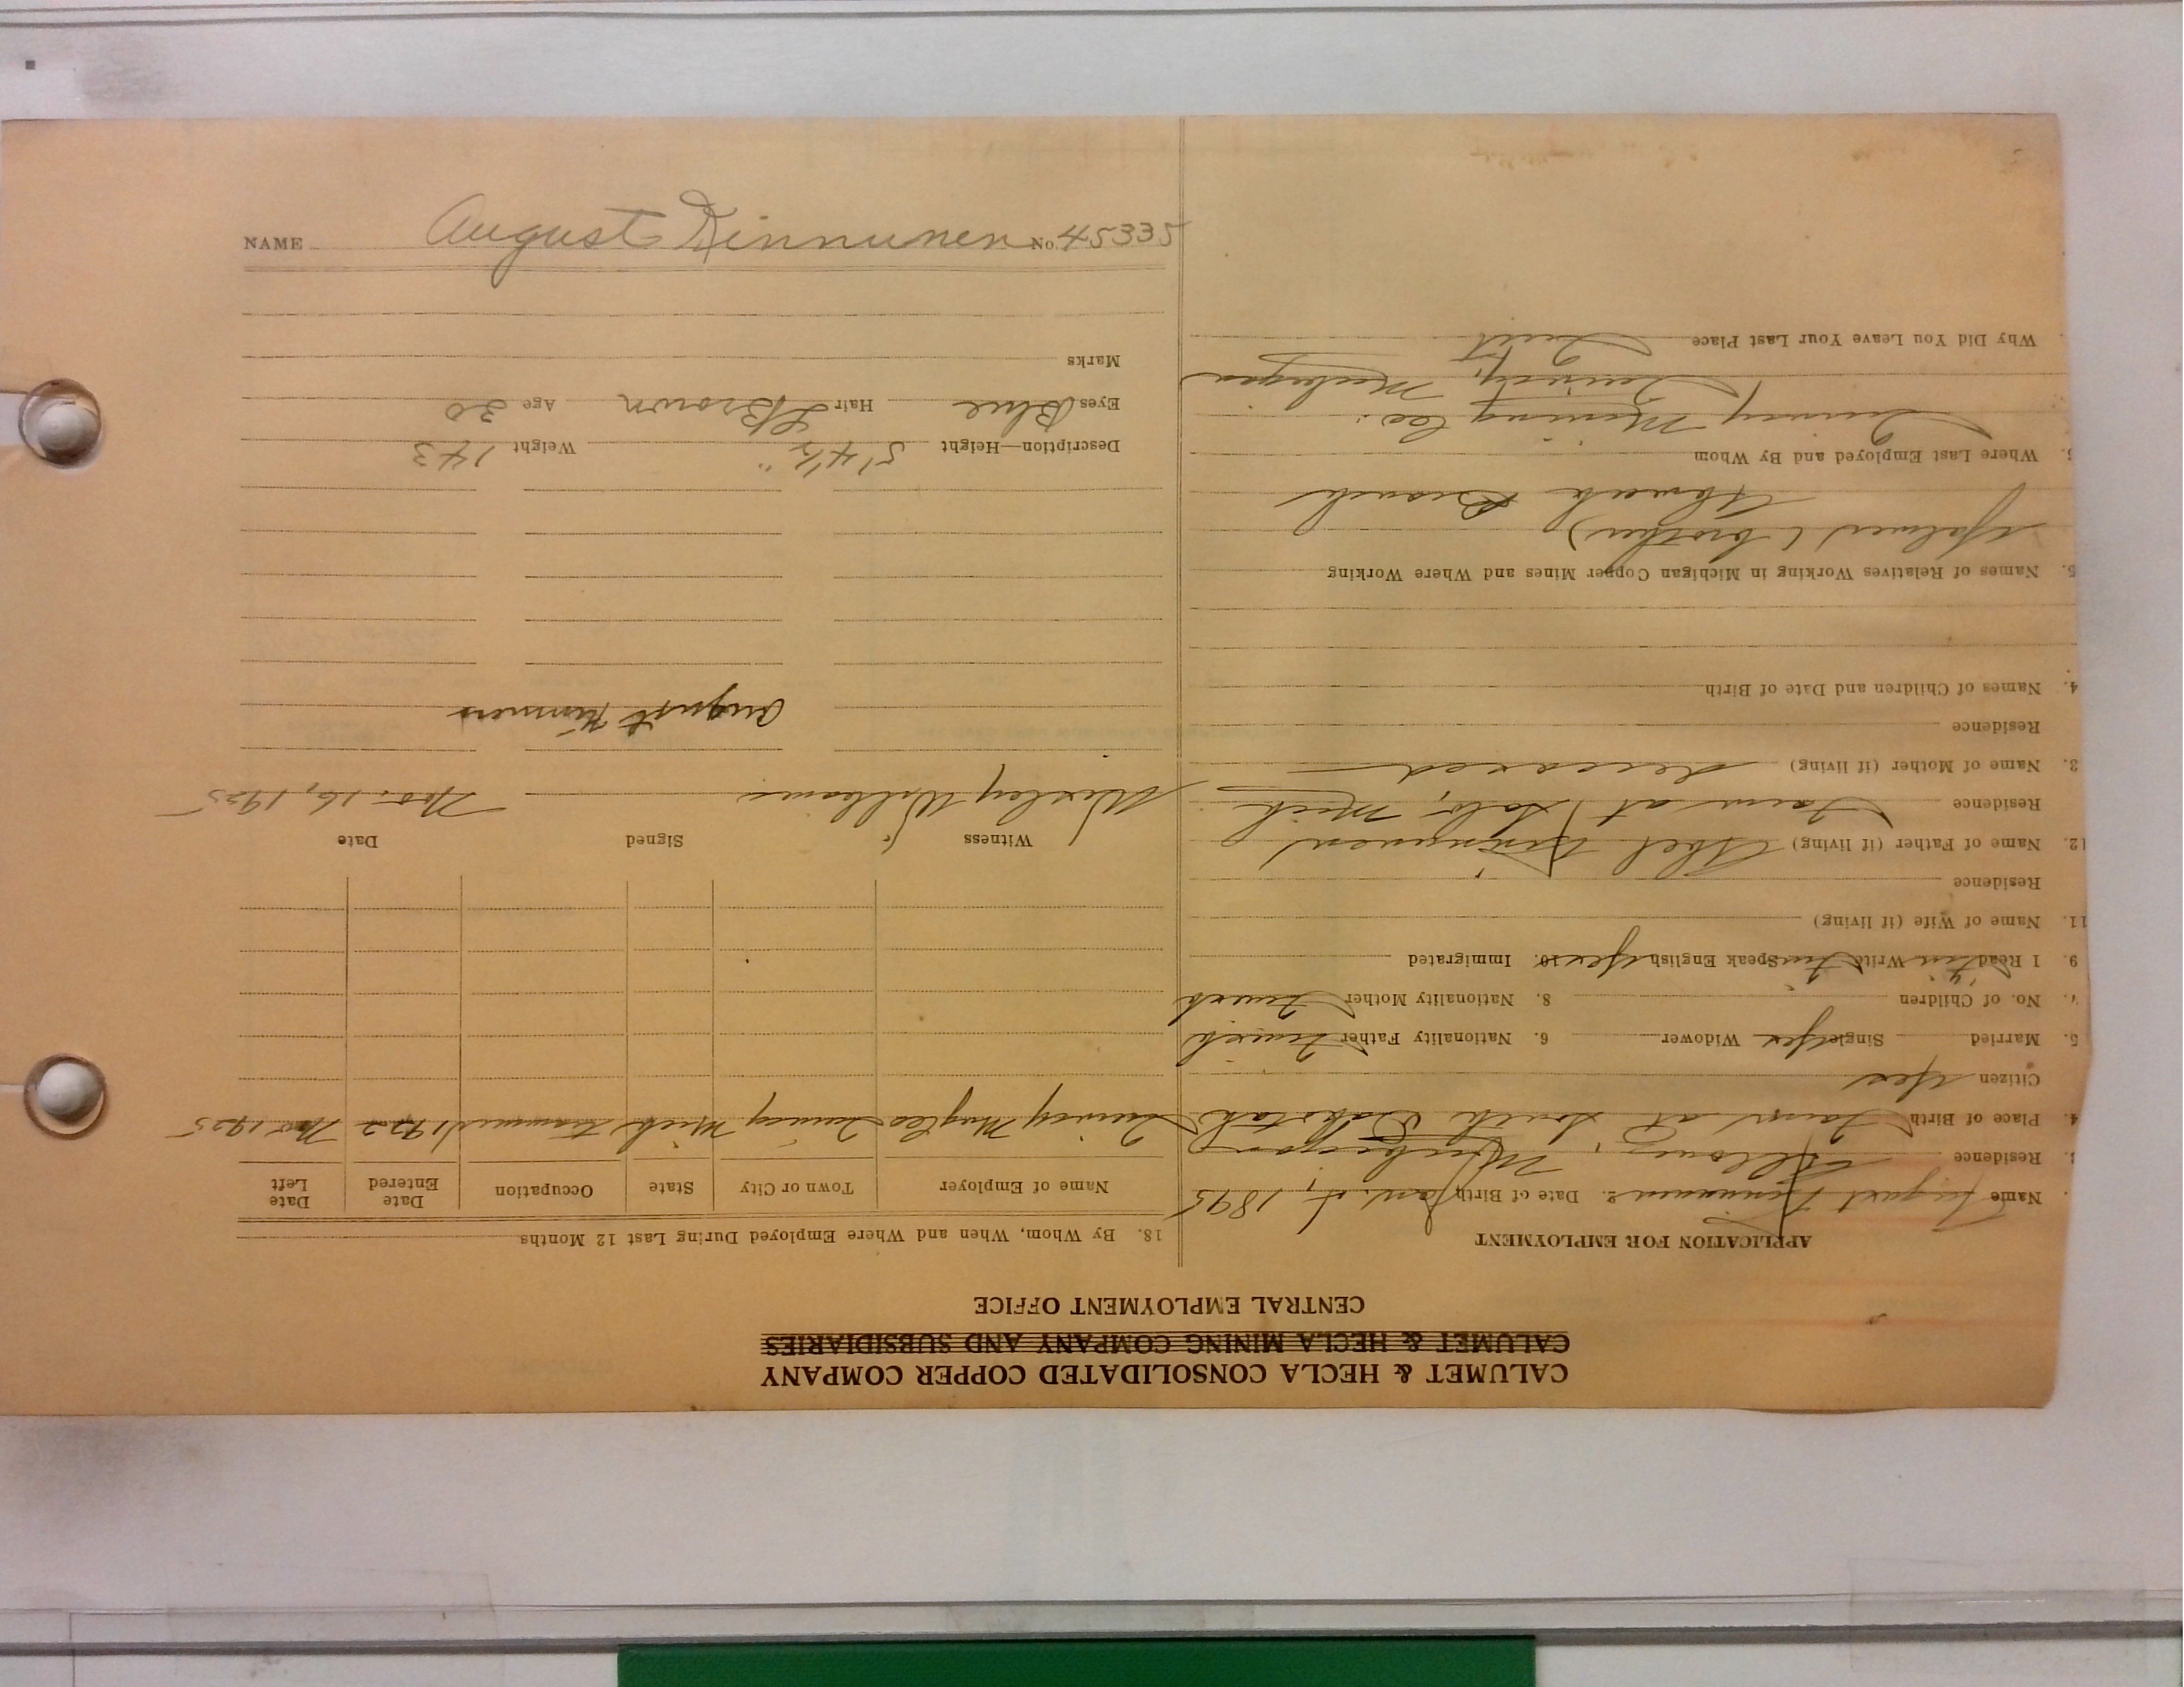 CALUMET & HECLA CONSOLIDATED COPPER COMPANY
CALUMET & HECLA MINING COMPANY AND SUBSIDIARIES
CENTRAL EMPLOYMENT OFFICE
APPLICATION FOR EMPLOYMENT
Name August Kinnunen 2. Date of Birth Jan. 1895
Residence Allouez, Michigan
4. Place of Birth Farm at South Dakota
Citizen Yes
5. Married Single Yes Widower 6. Nationality Father Finnish
7. No. of Children 8. Nationality Mother Finnish
9. I Read Write Speak English Yes 10. Immigrated
11. Name of Wife (if living)
Residence
12. Name of Father (if living) Abel Kinnunen
Residence Farm at Salo, Mich
3. Name of Mother (if living) deceased
Residence
4. Names of Children and Date of Birth
5. Names of Relatives Working in Michigan Copper Mines and Where Working
Hjalmer (brother)
Ahmeek Branch
Where Last Employed and By Whom
Quincy Mining Co.
Quincy, Michigan
Why Did You Leave Your Last Place Quit
18. By Whom, When and Where Employed During Last 12 Months
Name of Employer Town or City State Occupation Date Entered Date Left
Quincy Mng Co Quincy Mich Trammer 1922 Nov 1925
Witness Signed Date
Wesley Williams Nov. 16, 1925
August Kinnunen
Description—Height 5' 4½" Weight 143
Eyes Blue Hair L Brown Age 30
Marks
NAME August Kinnunen No. 45335